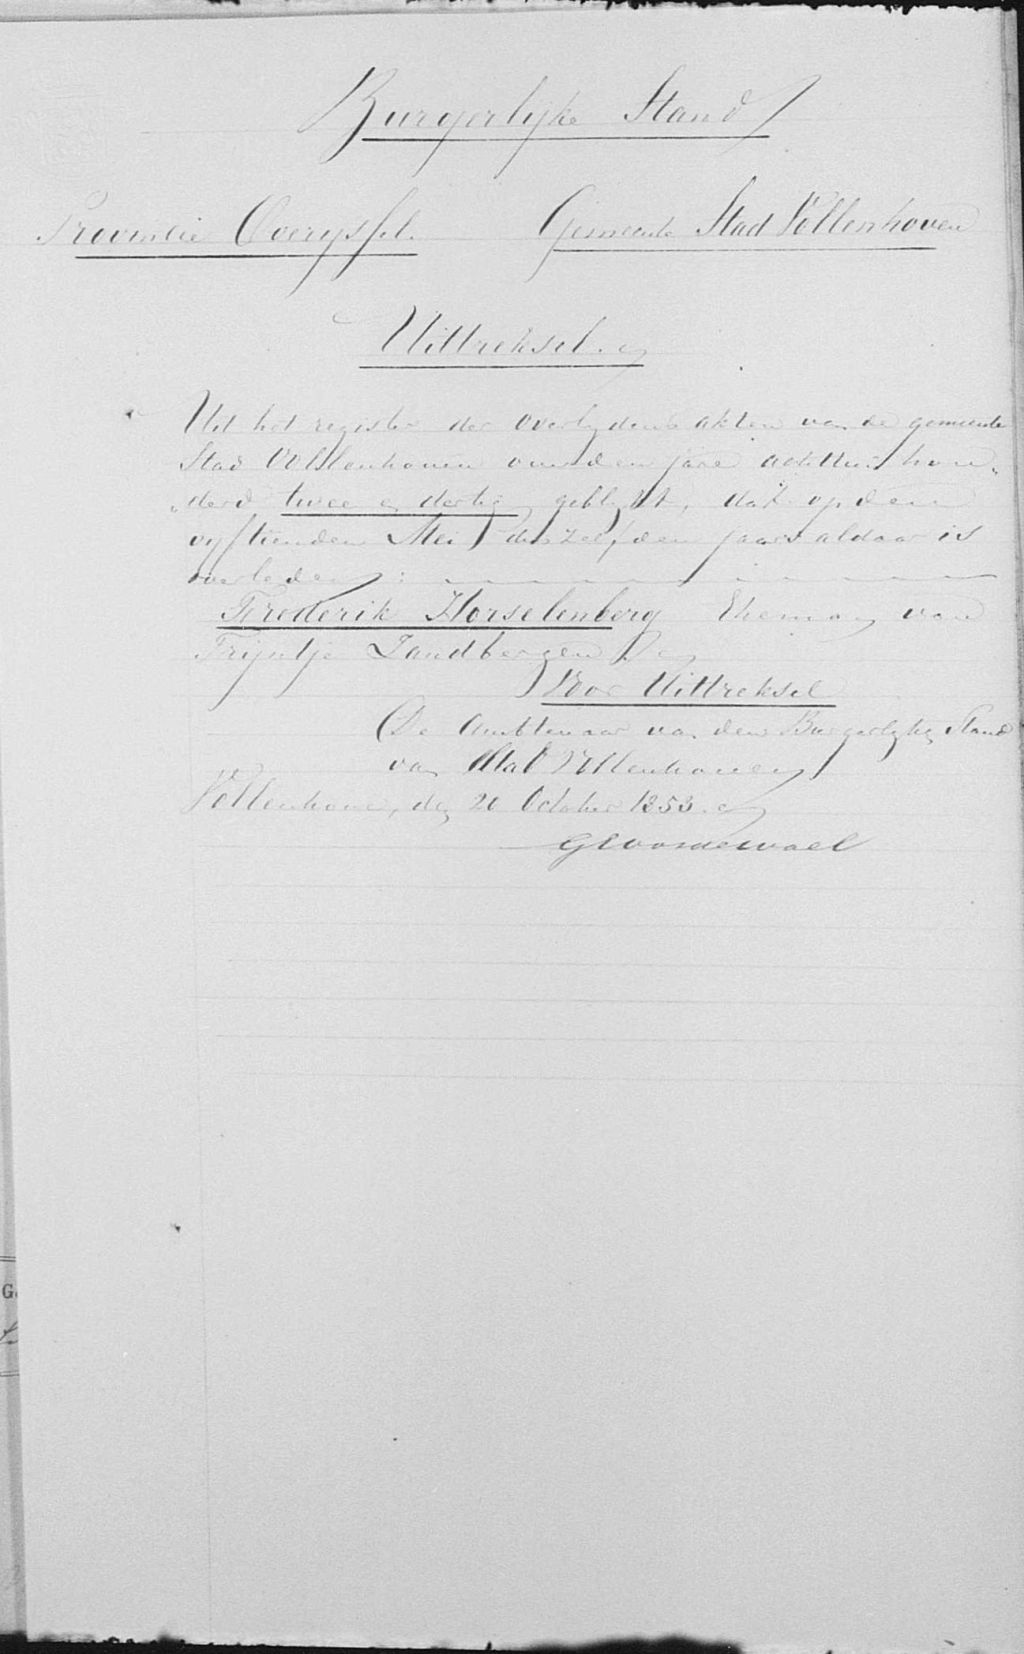 Burgerlyke Stand
Provincie Overyssel. Gemeente Stad Vollenhoven
Uittreksel.
Uit het register der overlydens akten van de gemeente
Stad Vollenhoven over den jare achttien hon-
derd twee en dertig, geblykt, dat op den
vyftienden Mei deszelfden jaars aldaar is
overleden:
Frederik Horselenberg Eheman van
Tryntje Zandbergen
Voor Uittreksel
De Ambtenaar van den Burgerlyken Stand
van Stad Vollenhoven
Vollenhove, den 20 October 1853.